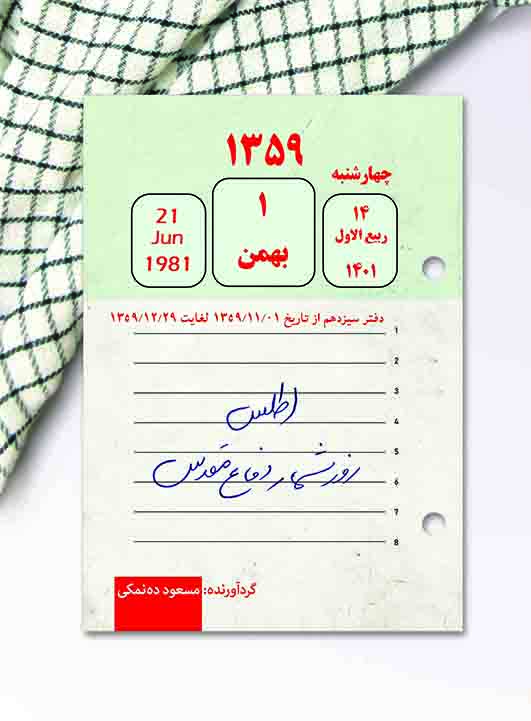 ۱۳۵۹
چهارشنبه
۱۴
ربیع الاول
۱۴۰۱
۱
بهمن
21
Jun
1981
دفتر سیزدهم از تاریخ ۱۳۵۹/۱۱/۰۱ لغایت ۱۳۵۹/۱۲/۲۹
1
2
3
اطلس
4
5
روزشمار دفاع مقدس
6
7
8
گردآورنده: مسعود ده‌نمکی